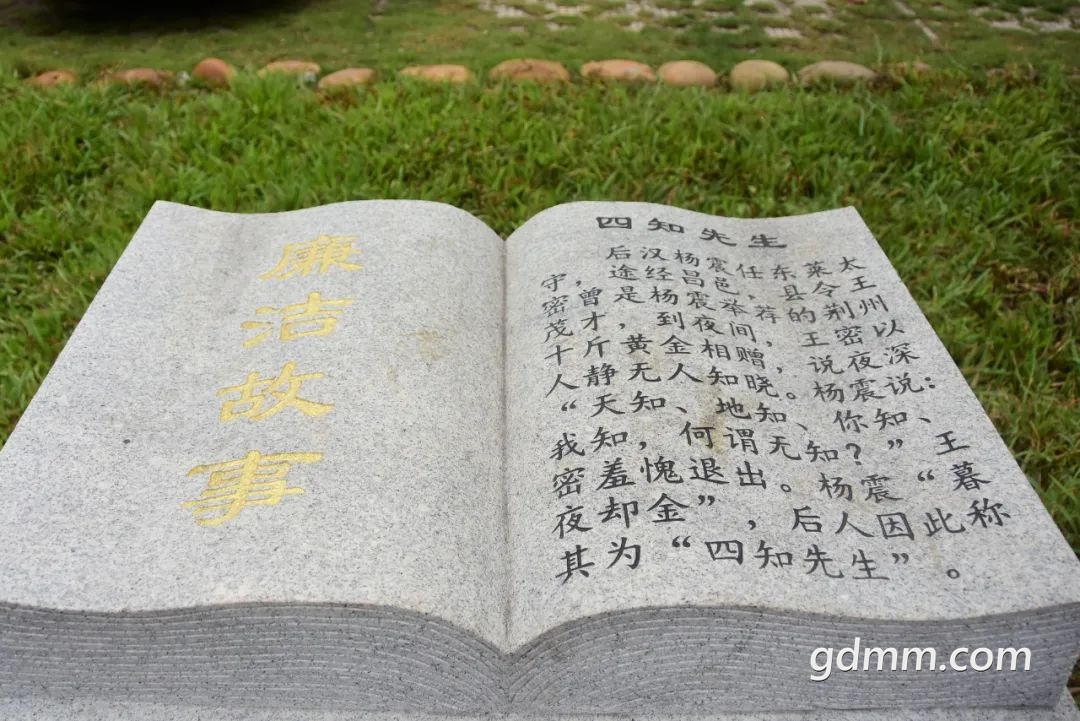 廉洁故事
四知先生
后汉杨震任东莱太
守，途经昌邑，县令王
密曾是杨震举荐的荆州
茂才，到夜间，王密以
十斤黄金相赠，说夜深
人静无人知晓。杨震说：
“天知、地知、你知、
我知，何谓无知？”王
密羞愧退出。杨震“暮
夜却金”，后人因此称
其为“四知先生”。
gdmm.com